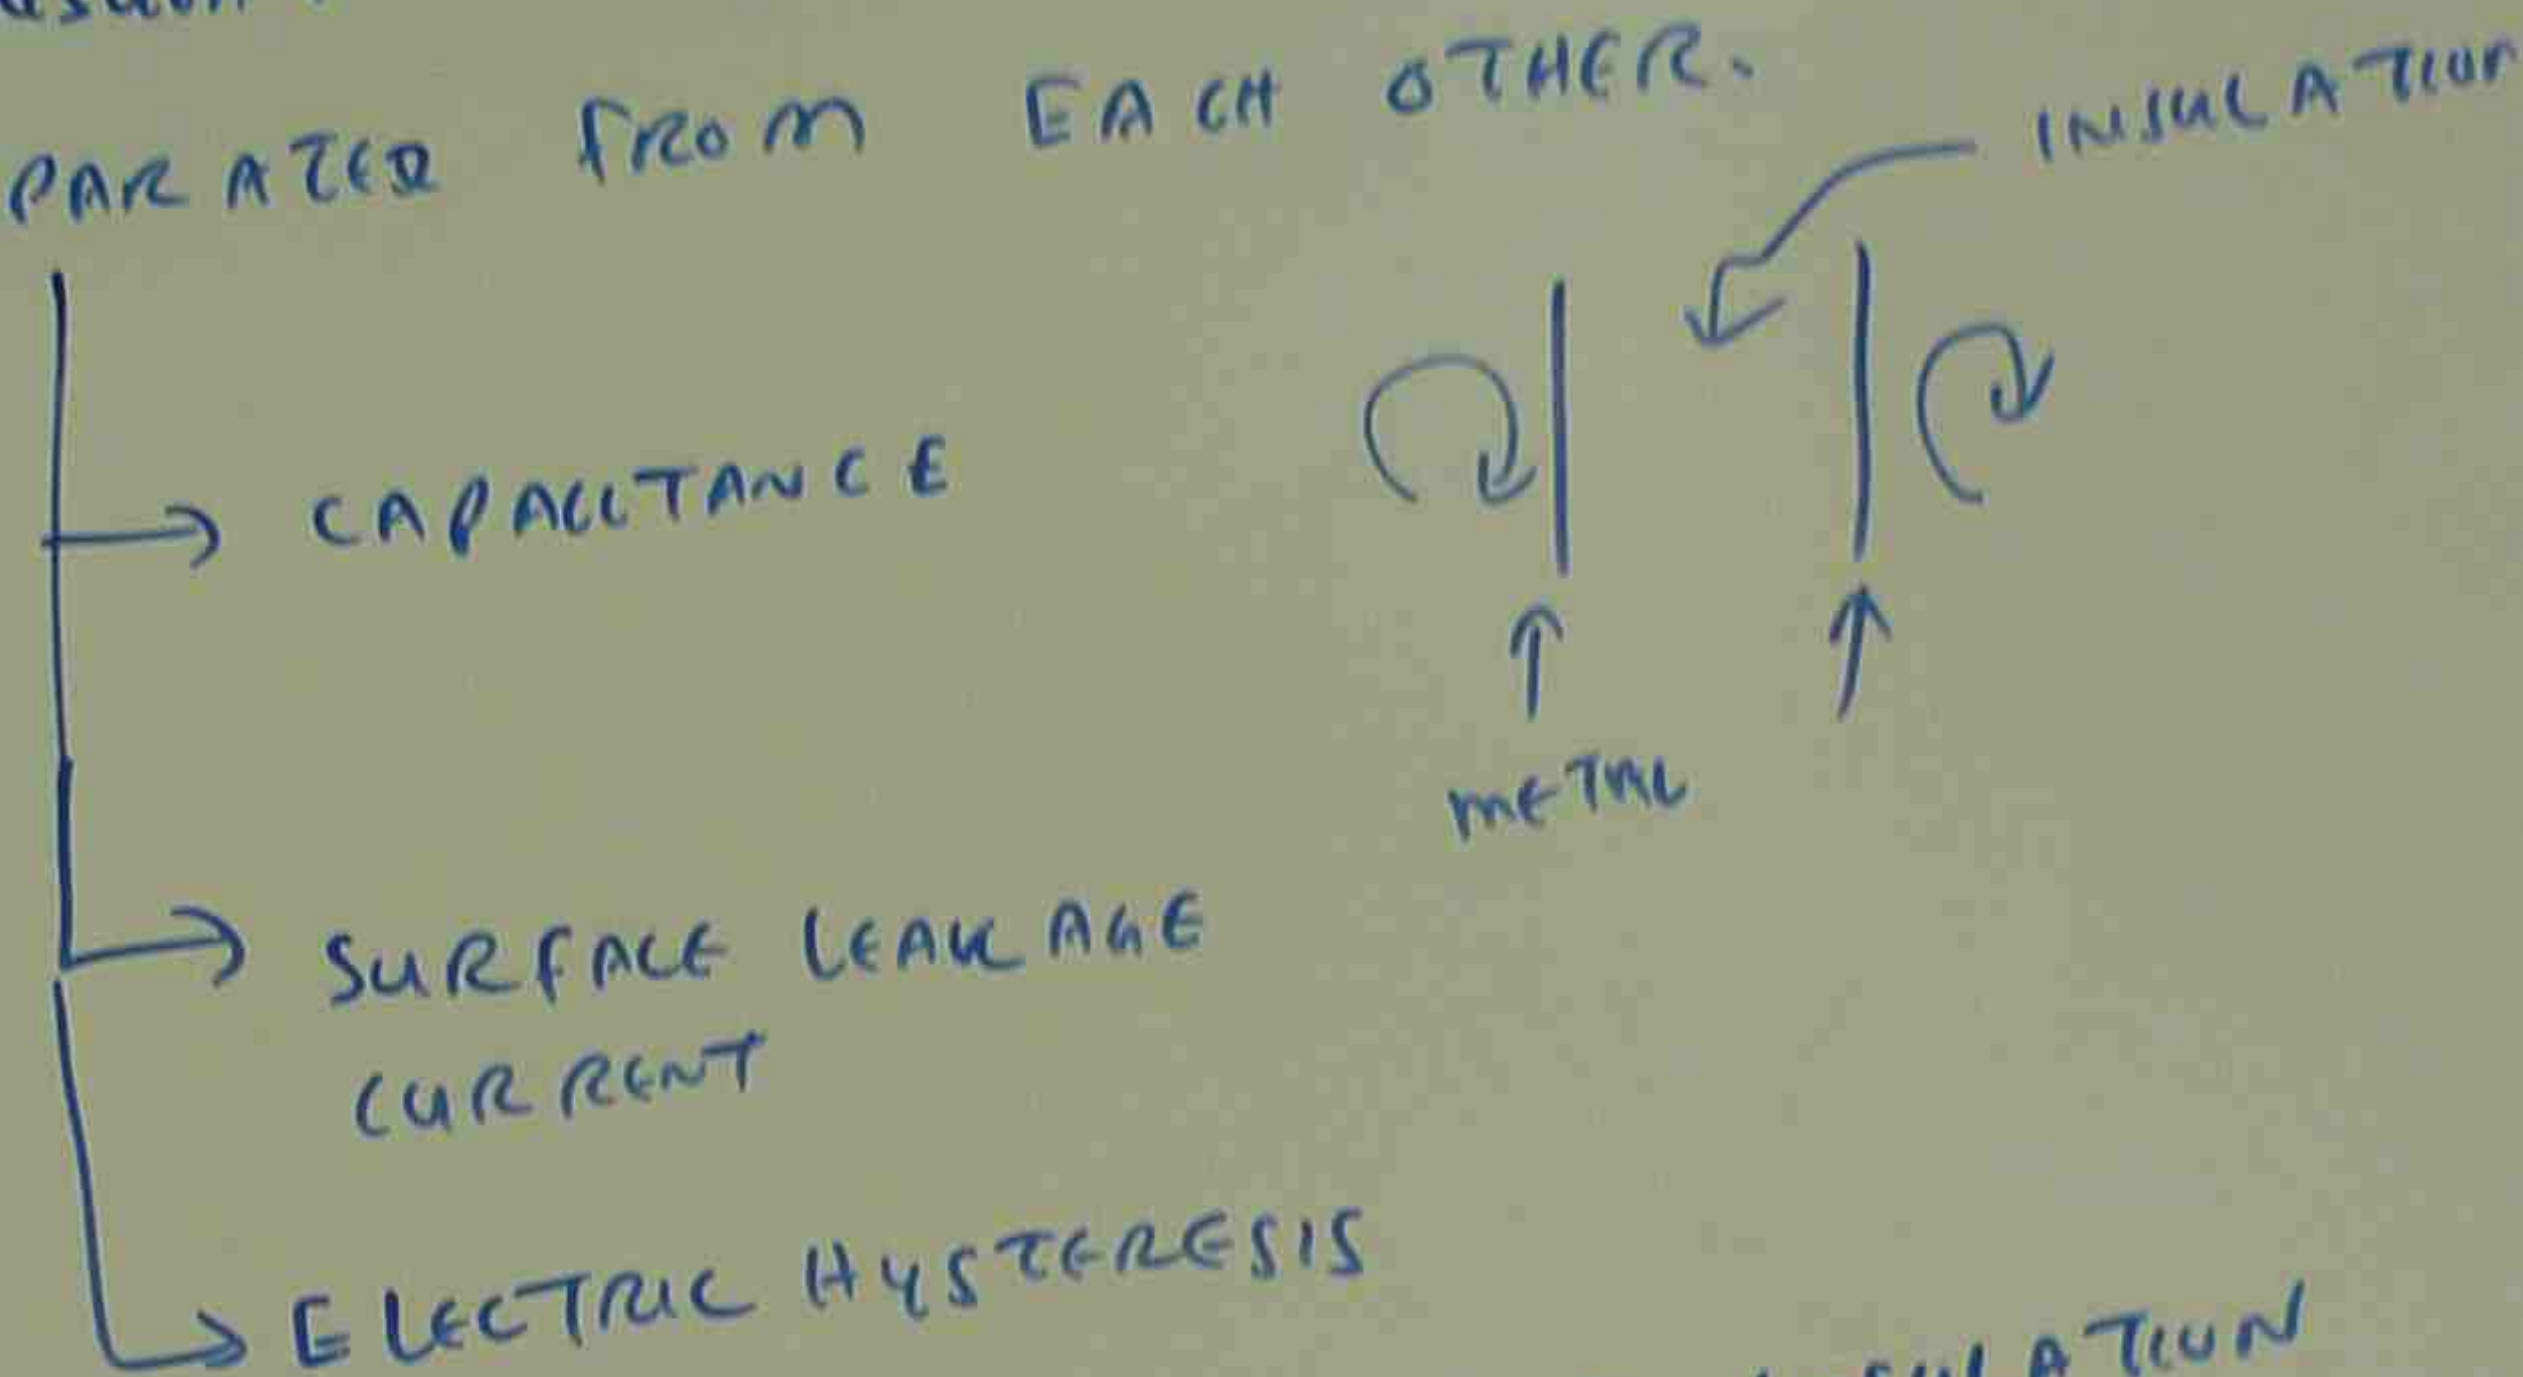 PARATED FROM EACH OTHER.
INSULATION
CAPACITANCE
METAL
SURFACE LEAKAGE
CURRENT
ELECTRIC HYSTERESIS